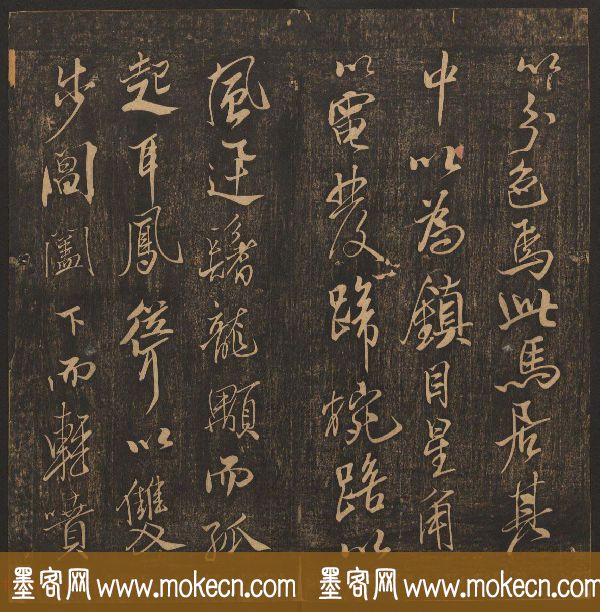 以分色焉此馬居其
中以為鎮目星角
以電發蹄椀踣以
風迅鬐龍顒而孤
起耳鳳以雙
步閶闔下而輕噴
墨客网 www.mokecn.com 墨客网 www.mokecn.com